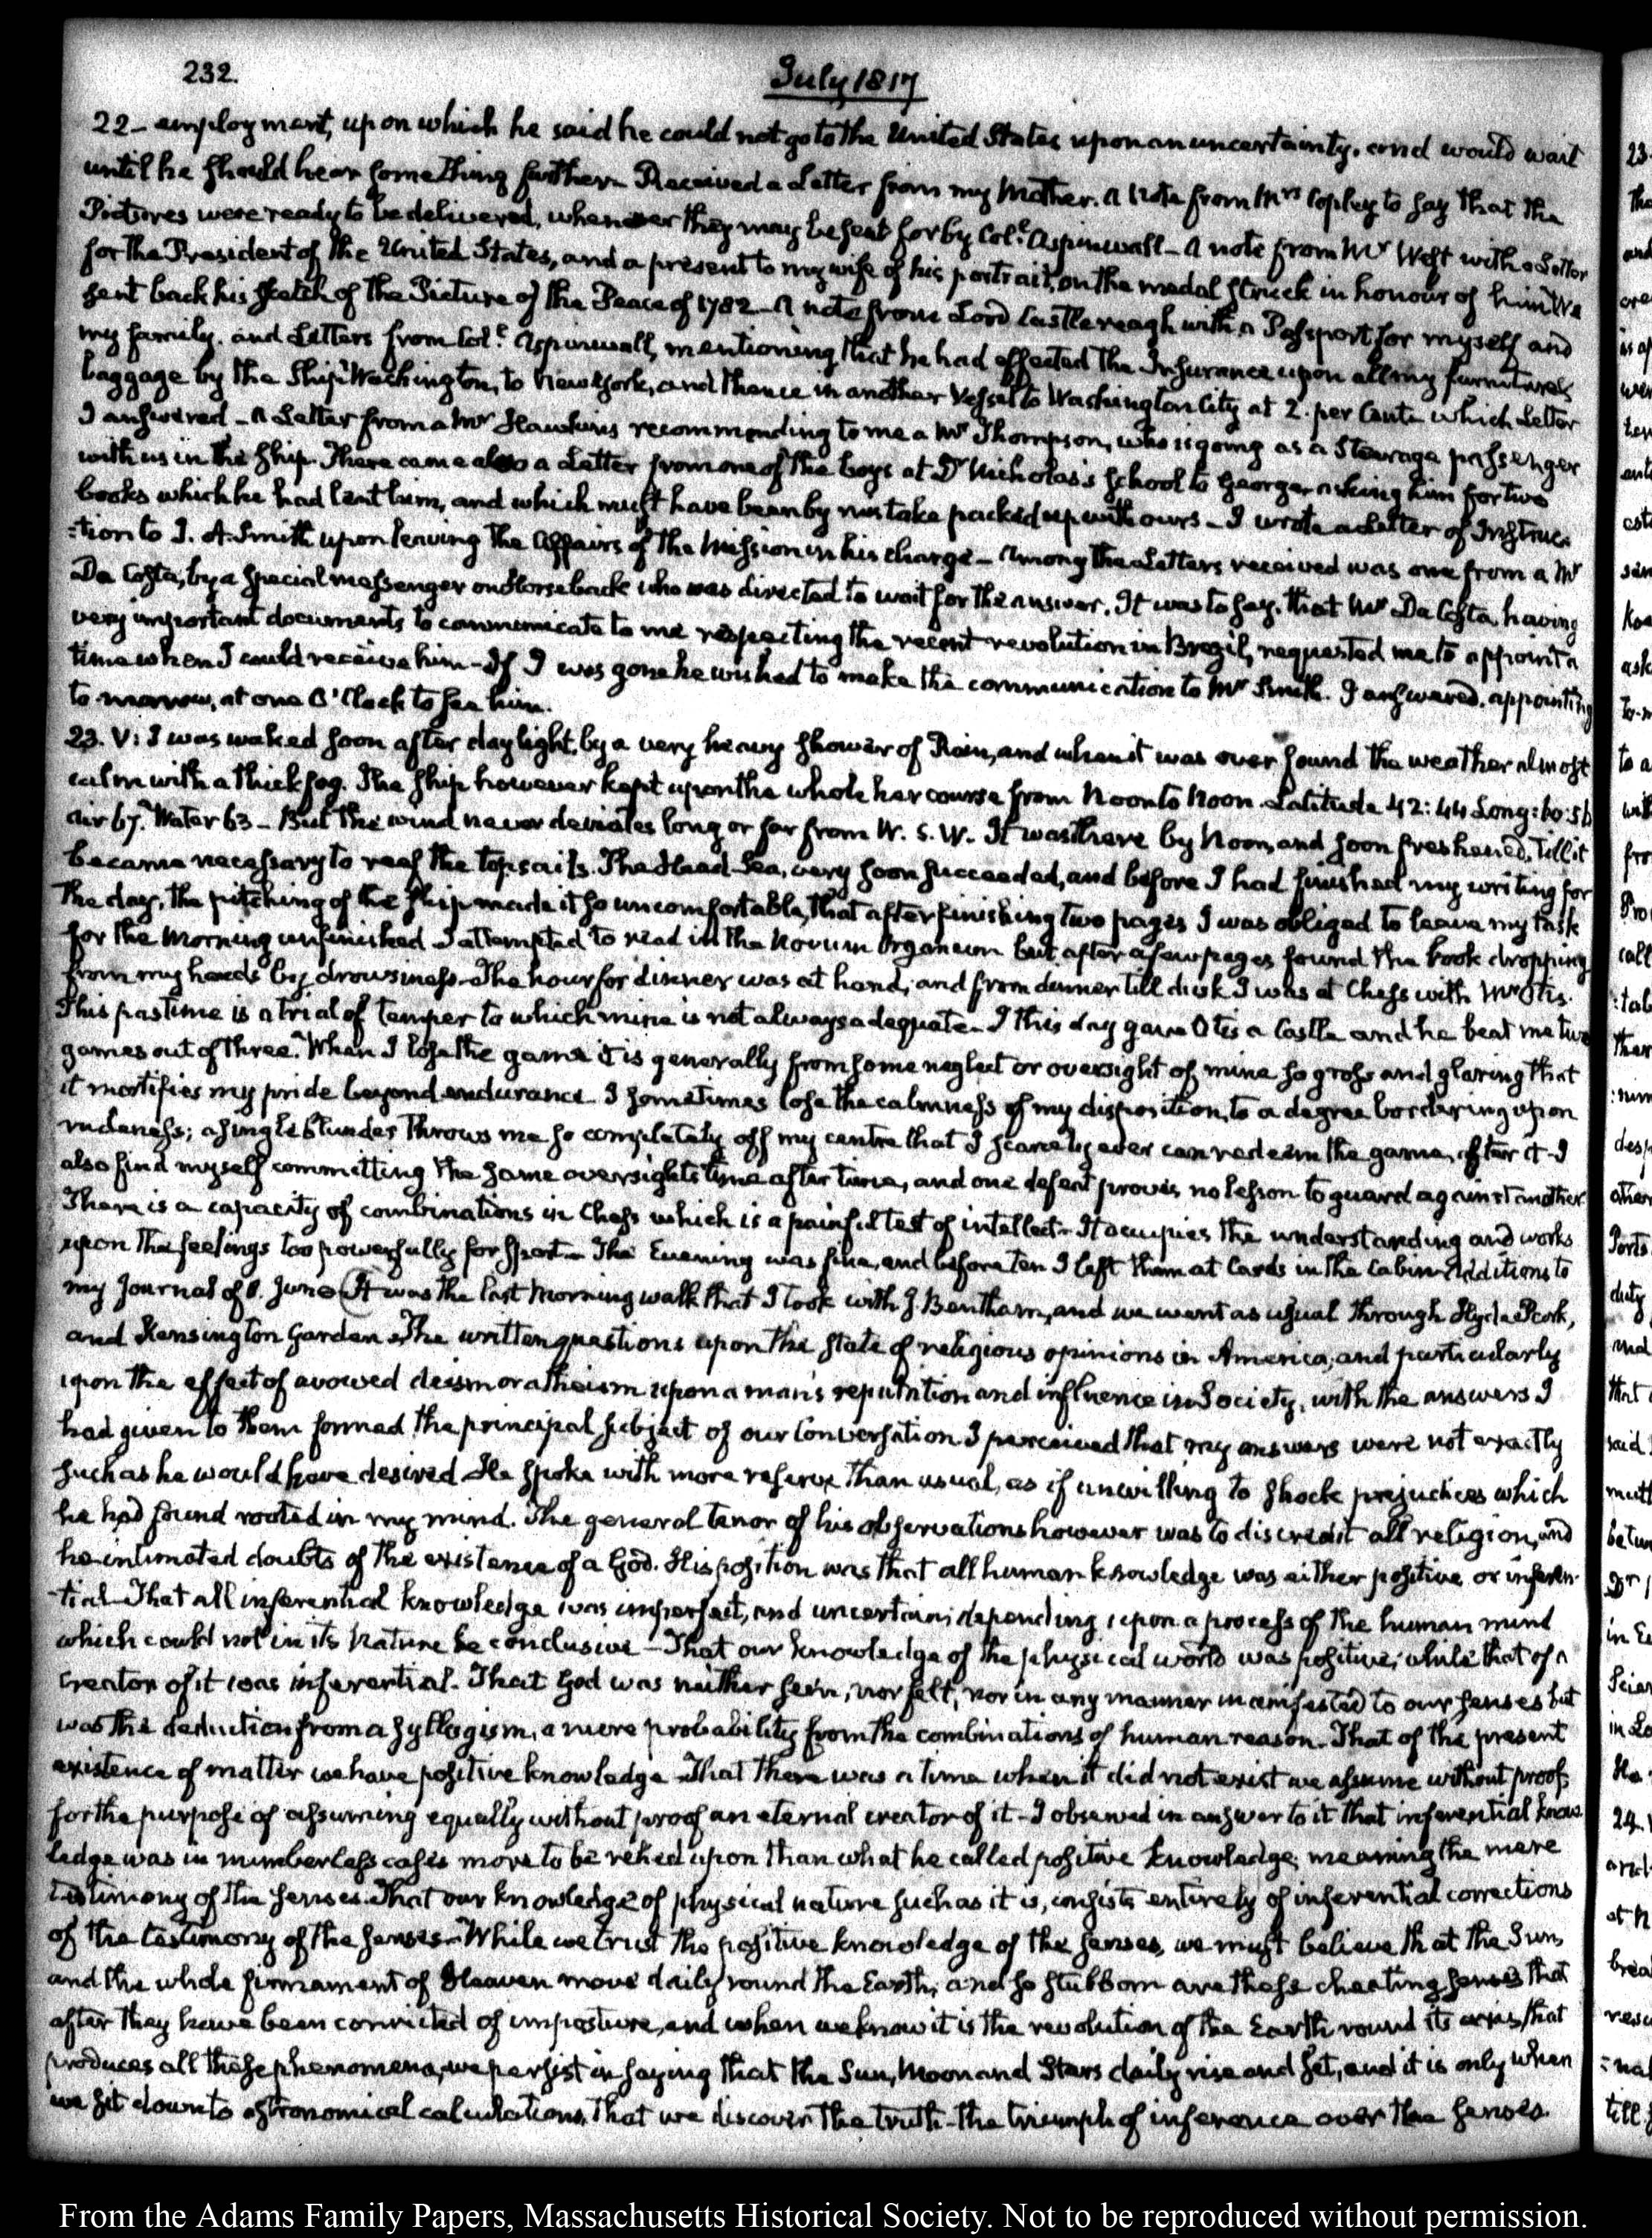 232.
July 1817
22– employment, upon which he said he could not go to the United States upon an uncertainty, and would wait
until he should hear something further– Received a Letter from my Mother. A Note from Mrs Copley to say that the
Pictures were ready to be delivered, whenever they may be sent for by Coll. Aspinwall– A note from Mr West with a Letter
for the President of the United States, and a present to my wife of his portrait, on the medal struck in honour of him. We
sent back his sketch of the Picture of the Peace of 1782– A note from Lord Castlereagh with a Passport for myself and
my family. and Letters from Coll. Aspinwall, mentioning that he had effected the Insurance upon all my furniture &
baggage by the Ship Washington, to New York, and thence in another Vessel to Washington City at 2. per Cent. which Letter
I answered– A Letter from a Mr Hawkins recommending to me a Mr Thompson, who is going as a Steerage passenger
with us in the Ship. There came also a Letter from one of the boys at Dr Nicholas's School to George, asking him for two
books which he had lent him, and which must have been by mistake packed up with ours– I wrote a Letter of Instruc-
:tion to J. A. Smith upon leaving the Affairs of the Mission in his charge– Among the Letters received was one from a Mr
Da Costa, by a special messenger on Horseback who was directed to wait for the answer. It was to say, that Mr Da Costa, having
very important documents to communicate to me respecting the recent revolution in Brazil, requested me to appoint a
time when I could receive him– If I was gone he wished to make the communication to Mr Smith. I answered, appointing
to-morrow, at one O'Clock to see him.
23. V: I was waked soon after daylight, by a very heavy shower of Rain, and when it was over found the weather almost
calm with a thick fog. The ship however kept upon the whole her course from Noon to Noon. Latitude 42:44 Long: 60:56
air 67. Water 63– But the wind never deviates long or far from W. S. W. It was there by Noon, and soon freshened, till it
became necessary to reef the topsails. The Head-Sea, very soon succeeded, and before I had finished my writing for
the day, the pitching of the ship made it so uncomfortable, that after finishing two pages I was obliged to leave my task
for the Morning unfinished– I attempted to read in the Novum Organum but after a few pages found the book dropping
from my hands by drowsiness– The hour for dinner was at hand; and from dinner till dusk I was at Chess with Mr Otis.
This pastime is a trial of temper to which mine is not always adequate– I this day gave Otis a Castle and he beat me two
games out of three. When I lose the game it is generally from some neglect or oversight of mine so gross and glaring that
it mortifies my pride beyond endurance– I sometimes lose the calmness of my disposition, to a degree bordering upon
rudeness; a single blunder throws me so completely off my centre that I scarcely ever can redeem the game, after it– I
also find myself committing the same oversights time after time, and one defeat proves no lesson to guard against another.
There is a capacity of combinations in Chess which is a painful test of intellect– It occupies the understanding and works
upon the feelings too powerfully for sport– The Evening was fine, and before ten I left them at Cards in the Cabin– Additions to
my Journal of 8. June (It was the last Morning walk that I took with J. Bentham, and we went as usual through Hyde Park,
and Kensington Garden– The written questions upon the state of religious opinions in America, and particularly
upon the effect of avowed deism or atheism upon a man's reputation and influence in Society, with the answers I
had given to them formed the principal subject of our Conversation. I perceived that my answers were not exactly
such as he would have desired. He spoke with more reserve than usual, as if unwilling to shock prejudices which
he had found rooted in my mind. The general tenor of his observations however was to discredit all religion, and
he intimated doubts of the existence of a God. His position was that all human knowledge was either positive or inferen-
-tial– That all inferential knowledge was imperfect, and uncertain; depending upon a process of the human mind
which could not in its Nature be conclusive– That our knowledge of the physical world was positive; while that of a
Creator of it was inferential. That God was neither seen, nor felt, nor in any manner manifested to our senses but
was the deduction from a syllogism, a mere probability from the combinations of human reason– That of the present
existence of matter we have positive knowledge– That there was a time when it did not exist we assume without proof,
for the purpose of assuming equally without proof an eternal creator of it– I observed in answer to it that inferential know-
ledge was in numberless cases more to be relied upon than what he called positive knowledge, meaning the mere
testimony of the senses. That our knowledge of physical nature such as it is, consists entirely of inferential corrections
of the testimony of the senses– While we trust the positive knowledge of the senses, we must believe that the Sun,
and the whole firmament of Heaven move daily round the Earth; and so stubborn are these cheating senses that
after they have been convicted of imposture, and when we know it is the revolution of the Earth round its axis, that
produces all these phenomena, we persist in saying that the Sun, Moon and Stars daily rise and set, and it is only when
we sit down to astronomical calculations, that we discover the truth– the triumph of inference over the senses.
From the Adams Family Papers, Massachusetts Historical Society. Not to be reproduced without permission.